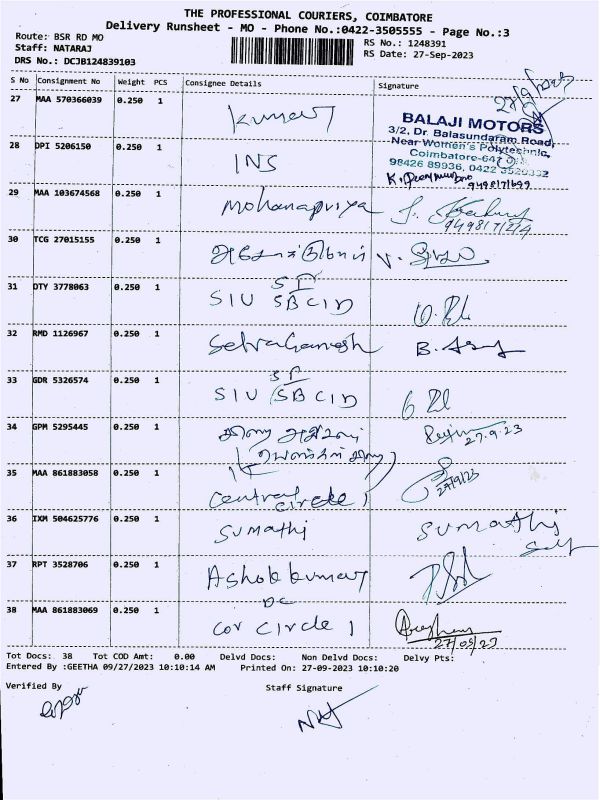 THE PROFESSIONAL COURIERS, COIMBATORE
Delivery Runsheet - MO - Phone No.:0422-3505555 - Page No.:3
Route: BSR RD MO
RS No.: 1248391
Staff: NATARAJ
RS Date: 27-Sep-2023
DRS No.: DCJB124839103
S No Consignment No Weight PCS Consignee Details Signature
27 MAA 570366039 0.250 1 Kumar
BALAJI MOTORS
3/2, Dr. Balasundaram Road,
Near Women's Polytechnic,
28 DPI 5206150 0.250 1 INS
Coimbatore-641
98426 89936, 0422
29 MAA 103674568 0.250 1 Mohanapriya
30 TCG 27015155 0.250 1
31 DTY 3778063 0.250 1 SIU SBCID
32 RMD 1126967 0.250 1 SelvaGanesh
33 GDR 5326574 0.250 1 SIU SBCID
34 GPM 5295445 0.250 1 27.9.23
35 MAA 861883058 0.250 1 Central Circle 1 27/9/23
36 IXM 504625776 0.250 1 Sumathi Sumathi
Self
37 RPT 3528706 0.250 1 Ashokkumar
DC
38 MAA 861883069 0.250 1 Cor Circle 1
Tot Docs: 38 Tot COD Amt: 0.00 Delvd Docs: Non Delvd Docs: Delvy Pts:
Entered By :GEETHA 09/27/2023 10:10:14 AM Printed On: 27-09-2023 10:10:20
Verified By Staff Signature